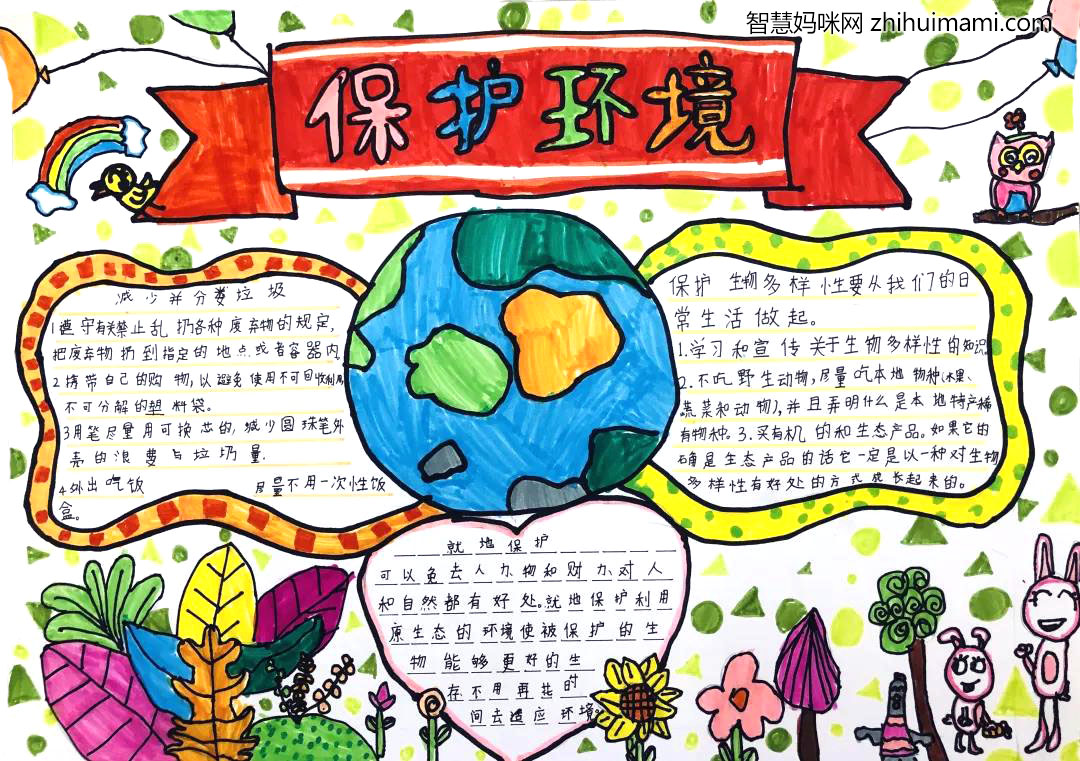 智慧妈咪网 zhihuimami.com
保护环境
减少并分类垃圾
1遵守有关禁止乱扔各种废弃物的规定,
把废弃物扔到指定的地点或者容器内
2携带自己的购物,以避免使用不可回收利用
不可分解的塑料袋。
3用笔尽量用可换芯的,减少圆珠笔外
壳的浪费与垃圾量.
4外出吃饭 尽量不用一次性饭
盒。
保护生物多样性要从我们的日
常生活做起。
1.学习和宣传关于生物多样性的知识.
2.不吃野生动物,尽量吃本地物种(水果、
蔬菜和动物),并且弄明什么是本地特产稀
有物种。3.买有机的和生态产品。如果它的
确是生态产品的话它一定是以一种对生物
多样性有好处的方式成长起来的。
就地保护
可以免去人力、物和财力、对人
和自然都有好处。就地保护利用
原生态的环境使被保护的生
物能够更好的生
存不用再共时
间去适应环境。